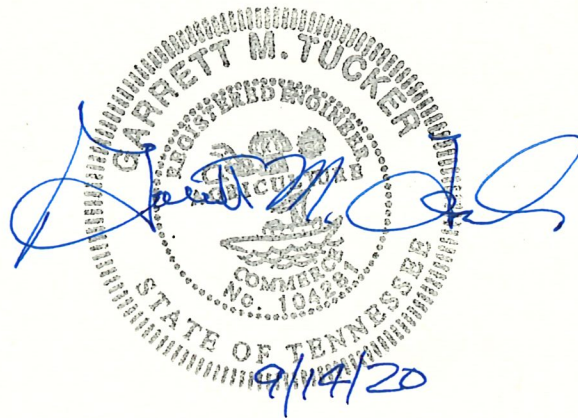 GARRETT M. TUCKER
REGISTERED ENGINEER
AGRICULTURE
COMMERCE
No. 104291
STATE OF TENNESSEE
Garrett M. Tucker
9/14/20